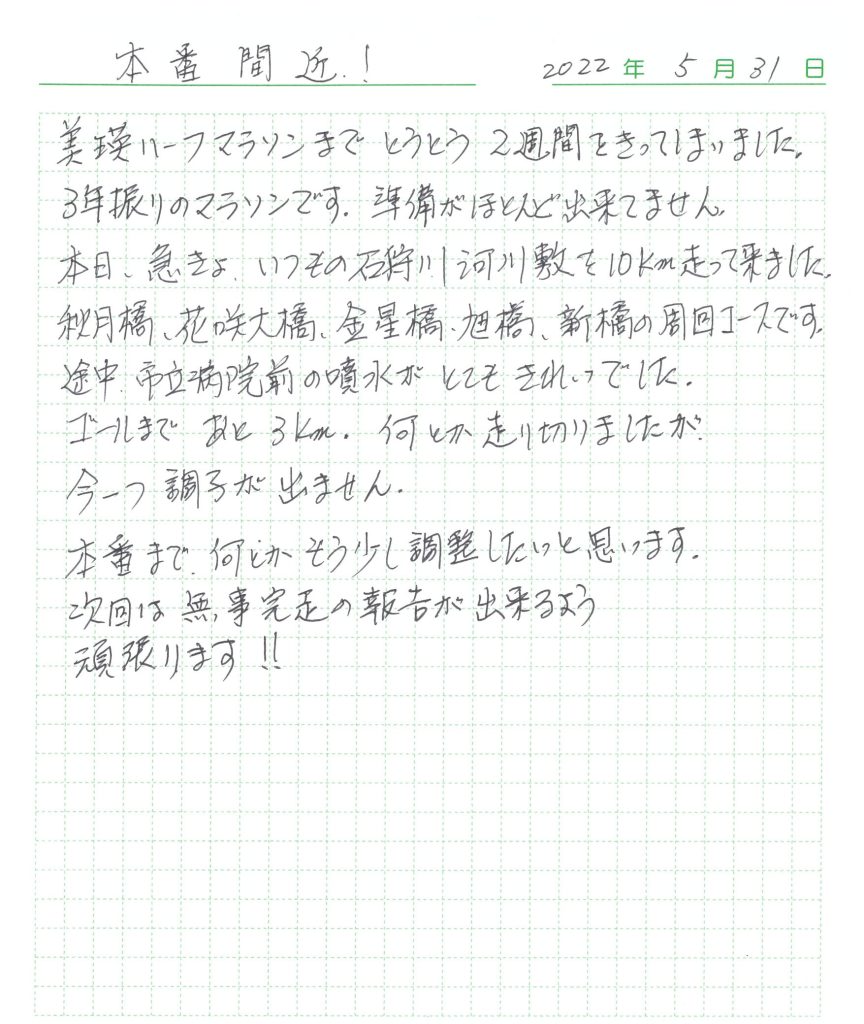 本番間近!
2022年 5月31日
美瑛ハーフマラソンまで とうとう 2週間をきってしまいました。
3年振りのマラソンです。準備がほとんど出来てません。
本日、急きょ、いつもの石狩川河川敷を10km走って来ました。
秋月橋、花咲大橋、金星橋、旭橋、新橋の周回コースです。
途中、市立病院前の噴水が とてもきれいでした。
ゴールまで あと 3km。何とか走り切りましたが、
今一つ調子が出ません。
本番まで、何とかもう少し調整したいと思います。
次回は無事完走の報告が出来るよう
頑張ります!!